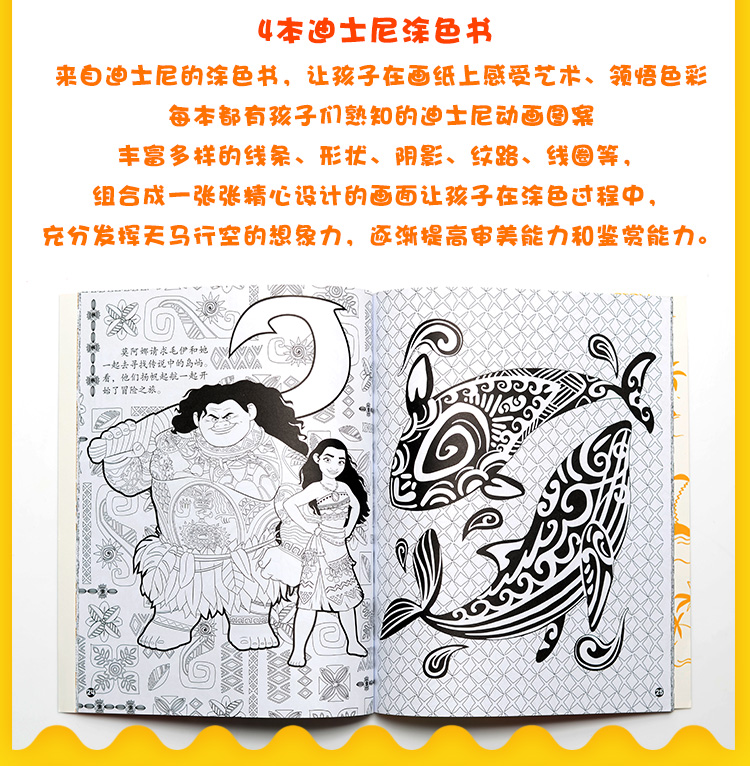 4本迪士尼涂色书
来自迪士尼的涂色书，让孩子在画纸上感受艺术、领悟色彩
每本都有孩子们熟知的迪士尼动画图案
丰富多样的线条、形状、阴影、纹路、线圈等，
组合成一张张精心设计的画面让孩子在涂色过程中，
充分发挥天马行空的想象力，逐渐提高审美能力和鉴赏能力。
莫阿娜请求毛伊和她
一起去寻找传说中的岛屿。
看，他们扬帆起航一起开
始了冒险之旅。
24
25